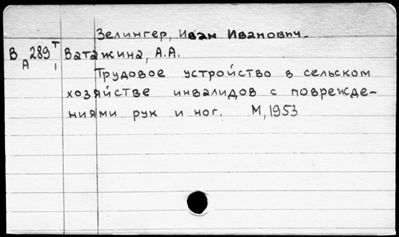 Зелингер, Иван Иванович.
В 289 Т Ватажина, А.А.
А 1
Трудовое устройство в сельском
хозяйстве инвалидов с поврежде-
ниями рук и ног. М, 1953